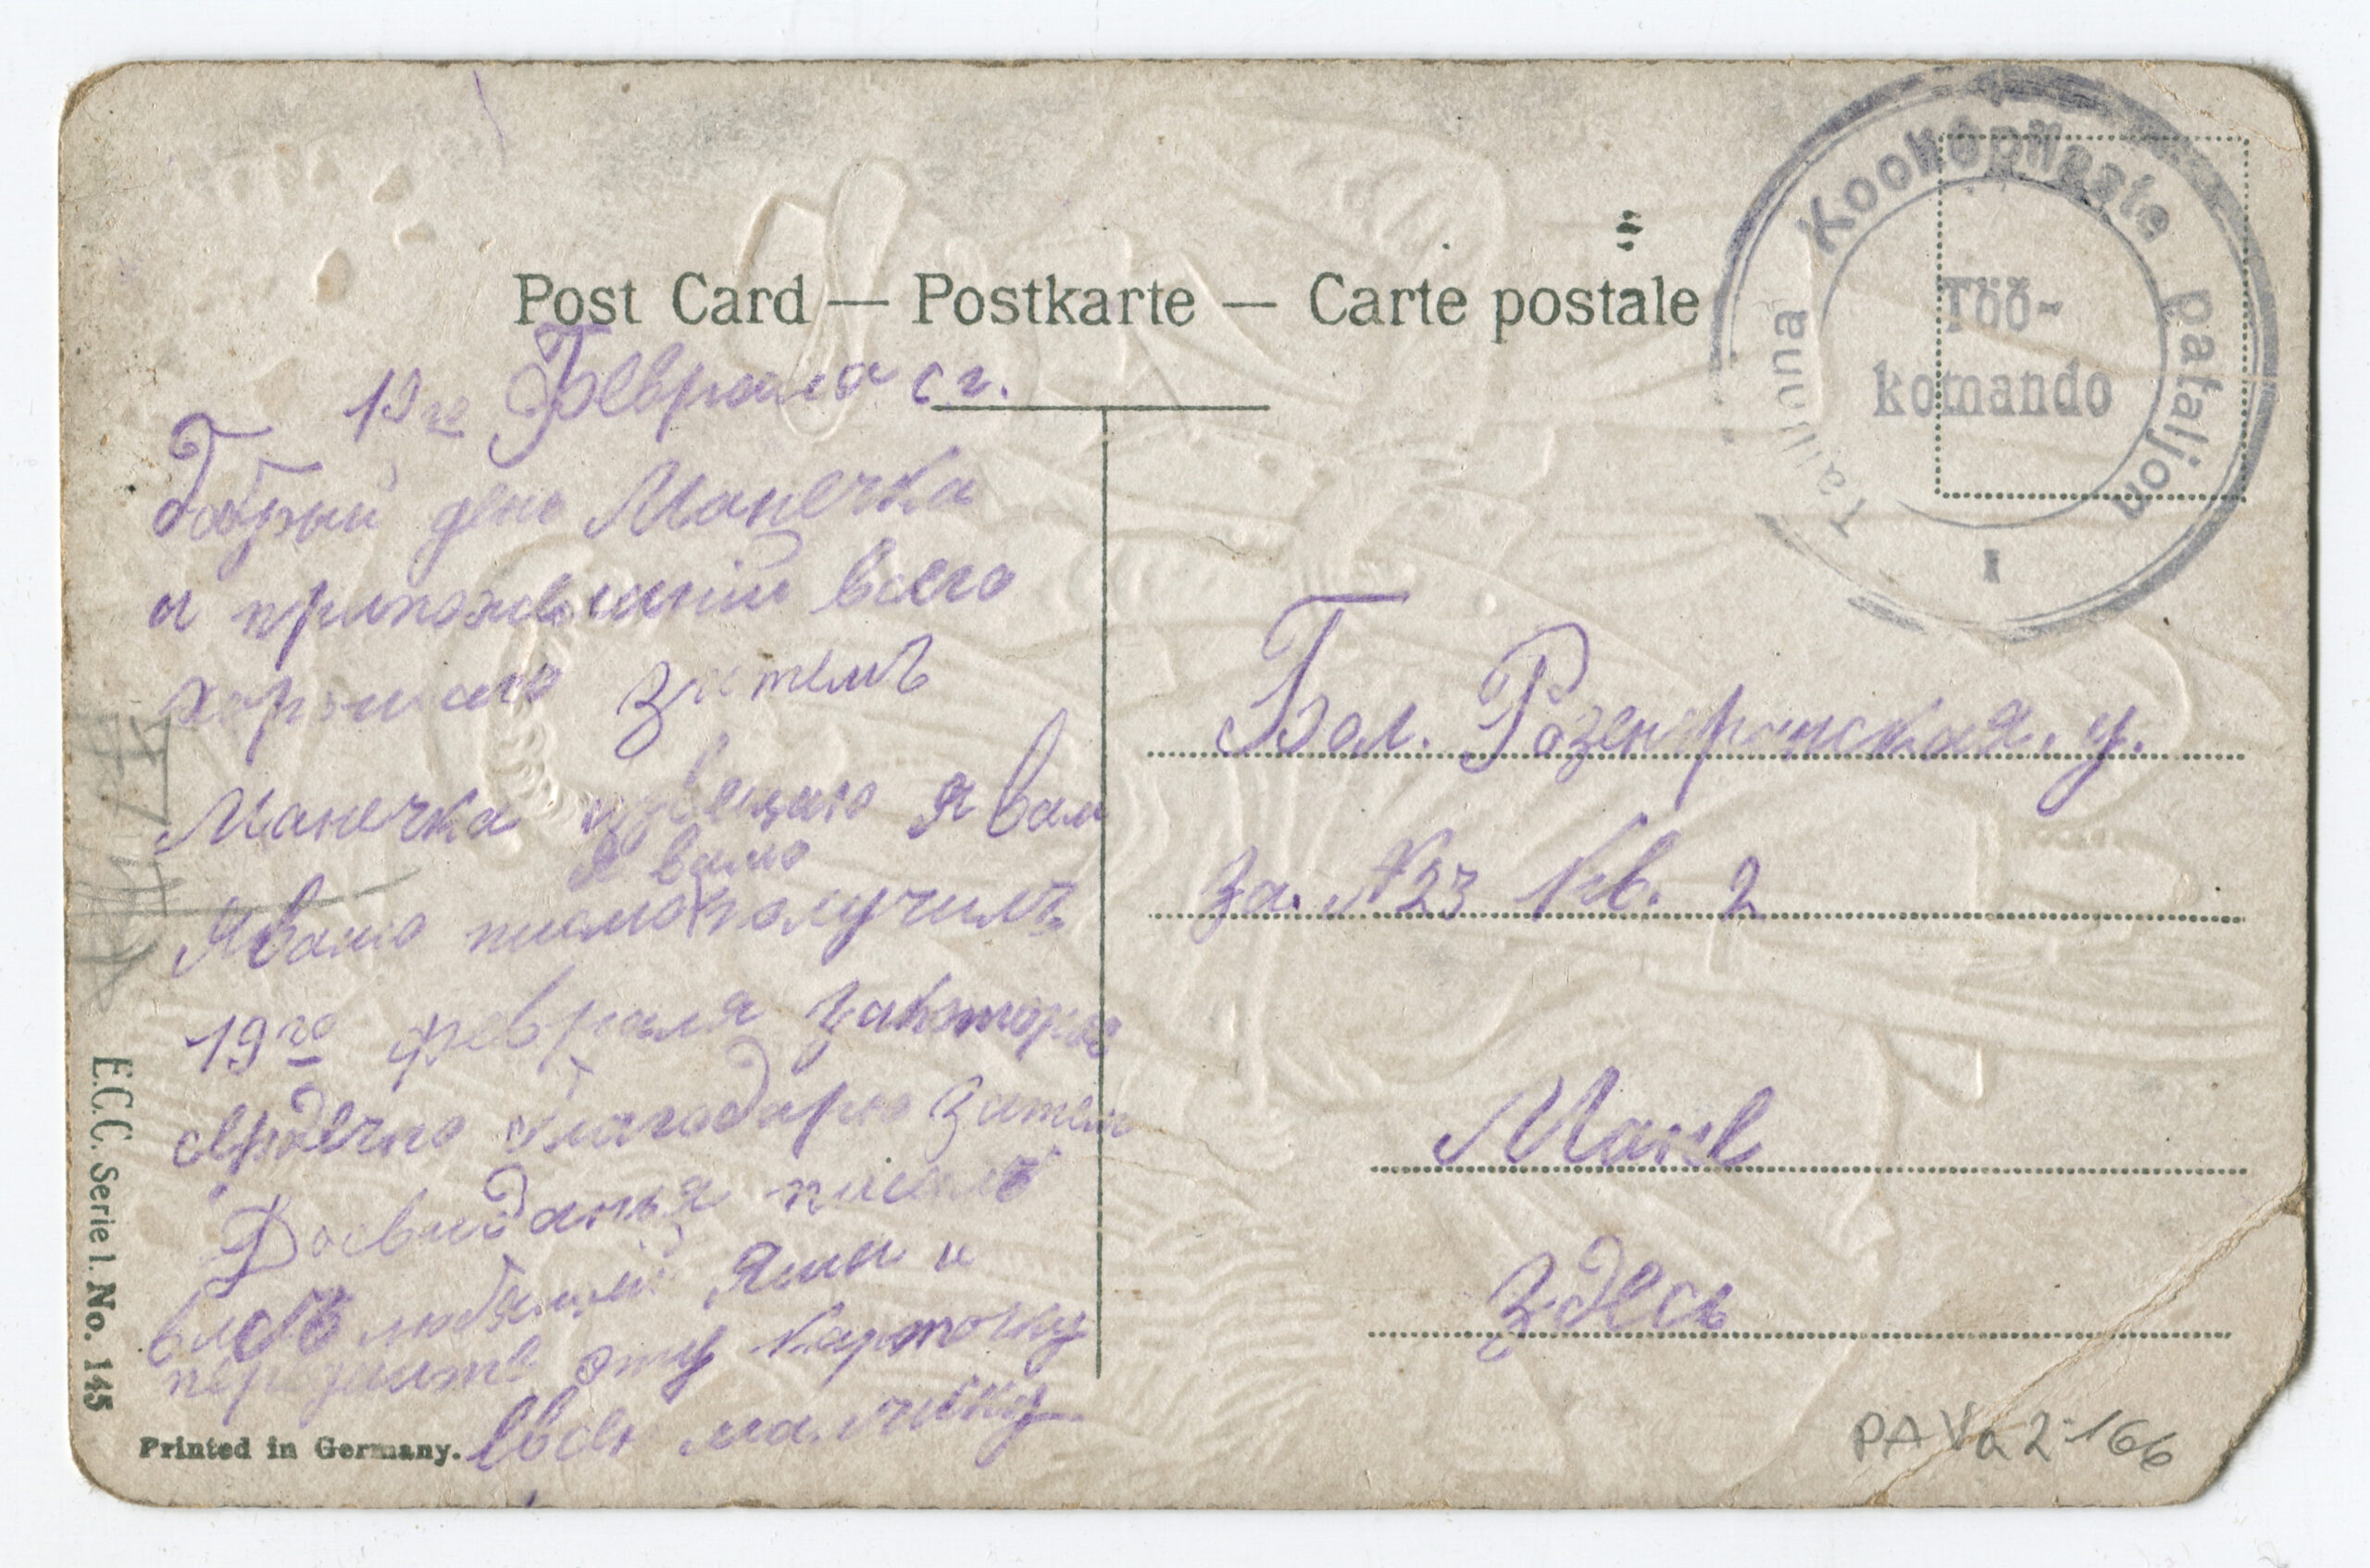 Post Card — Postkarte — Carte postale
Tallinna Kookõpilaste pataljon
Töö-
komando
19го Февраля с г.
Добрый день Манечка
и всего
хорошаго Затемъ
Манечка извещаю я вам
я ваше
Я ваше писмо получилъ
19го февраля
сердечно благодарю Затем
Досвиданья писалъ
васъ любящий Яша и
передайте эту карточку
маличику
Бол. у.
За. №23 Кв. 2
Мане
Здесь
E.C.C. Serie 1. No. 145
Printed in Germany.
PAVa 2-166